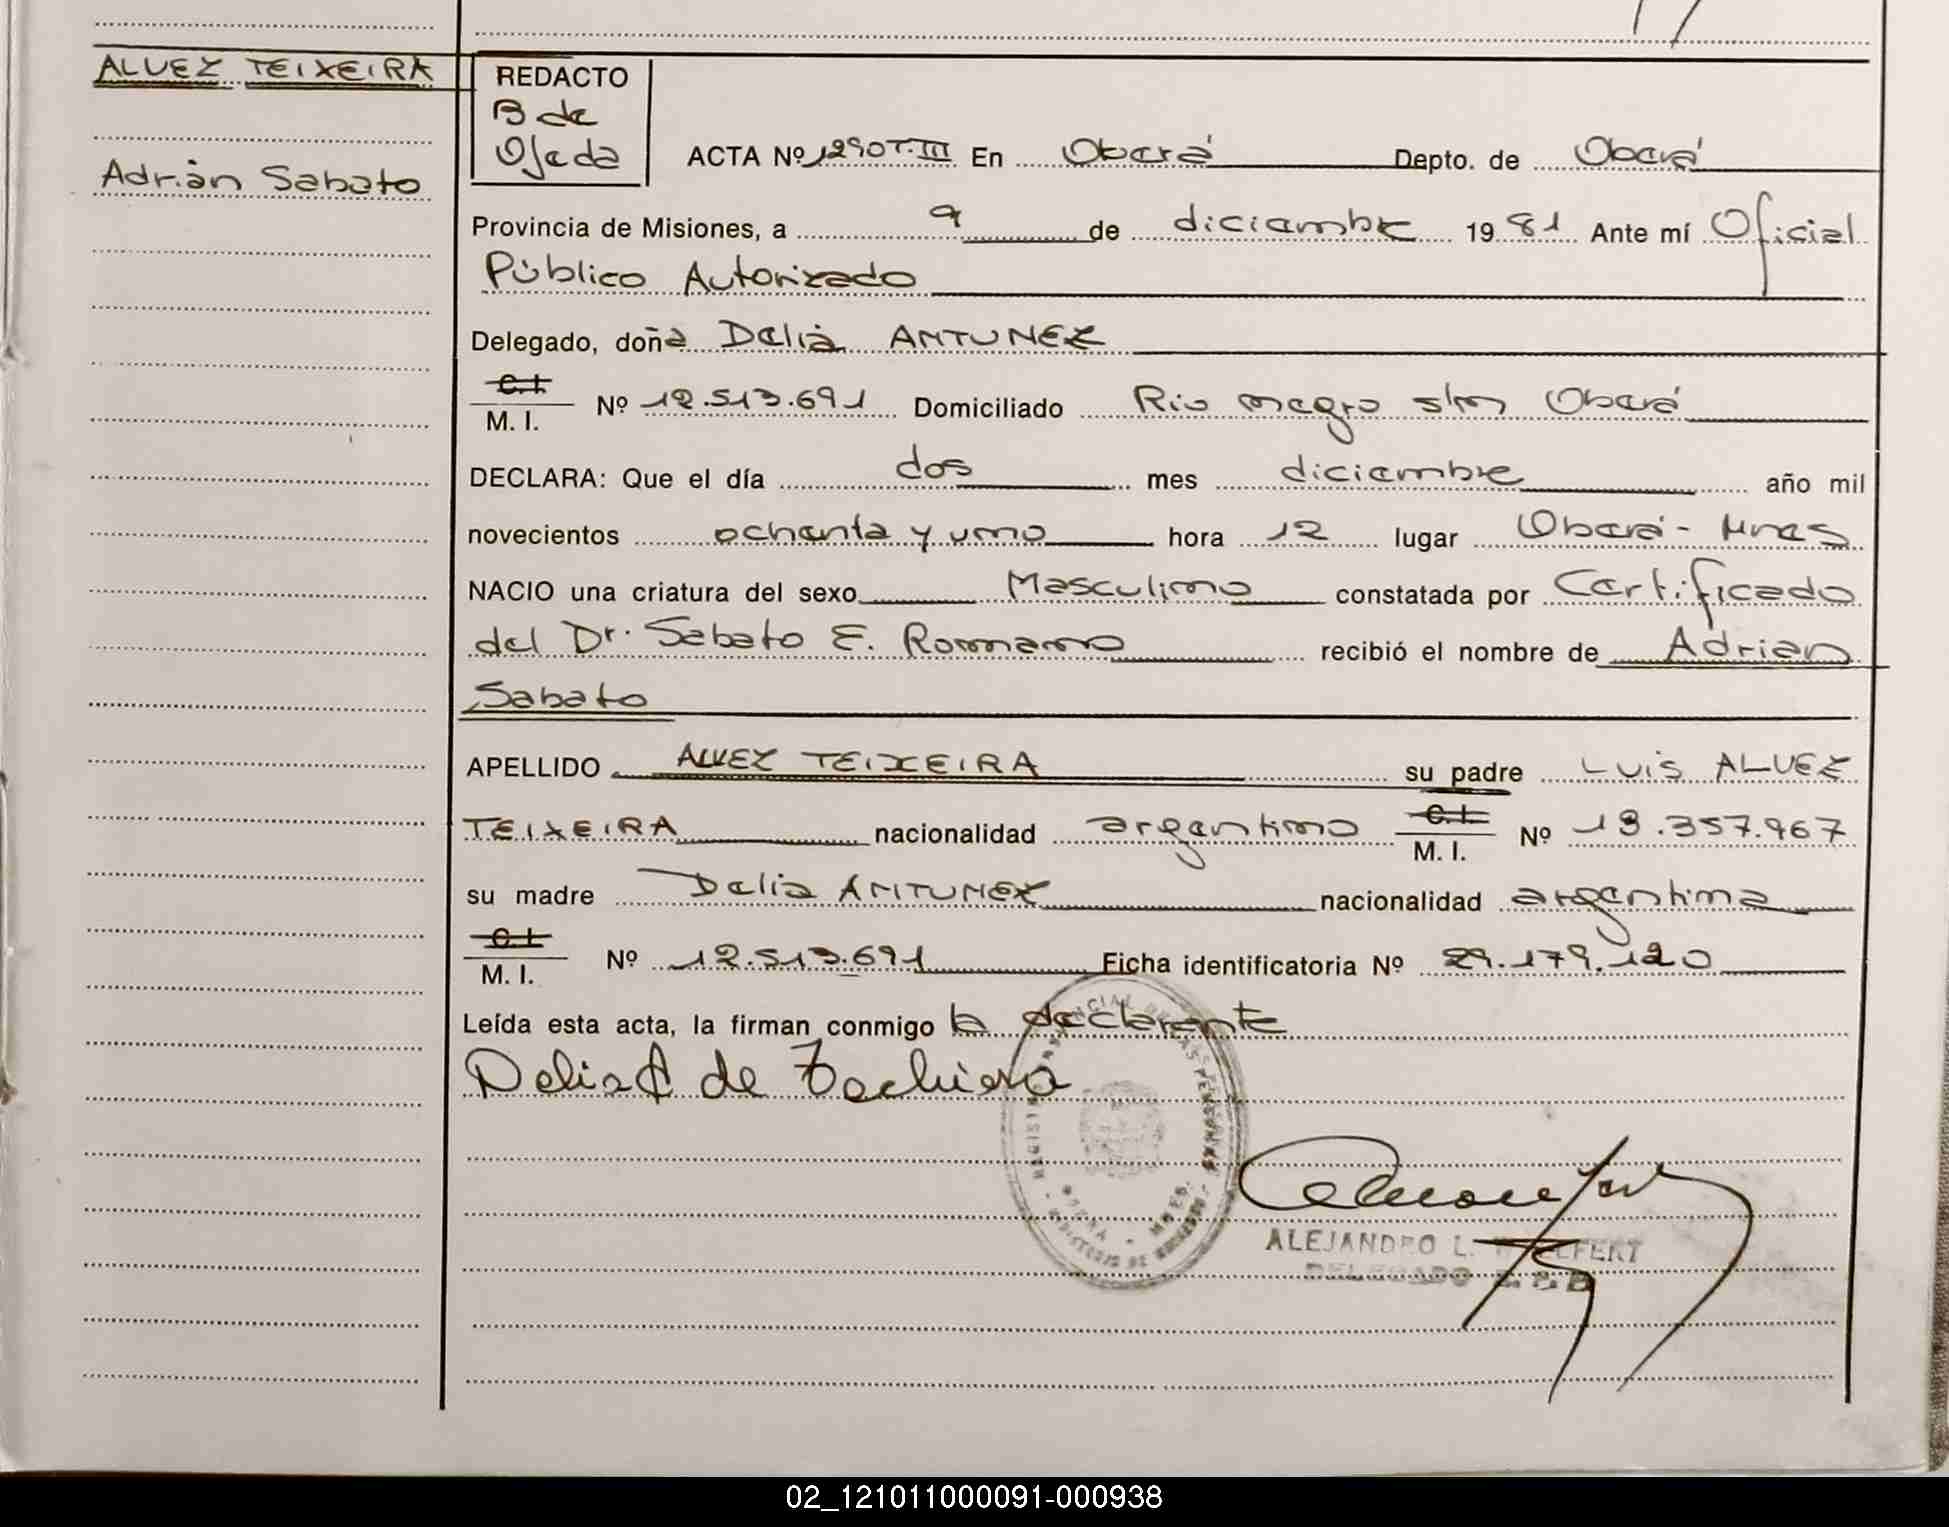 ALVEZ TEIXEIRA
Adrián Sabato
REDACTO
B de
Ojeda
ACTA Nº 1290 T. III En Oberá Depto. de Oberá
Provincia de Misiones, a 9 de diciembre 1981 Ante mí Oficial
Público Autorizado
Delegado, doña Delia ANTUNEZ
C.I.
M. I. Nº 12.513.691 Domiciliado Rio negro s/n Oberá
DECLARA: Que el día dos mes diciembre año mil
novecientos ochenta y uno hora 12 lugar Oberá - Mnes
NACIO una criatura del sexo Masculino constatada por Certificado
del Dr. Sabato E. Romano recibió el nombre de Adrian
Sabato
APELLIDO ALVEZ TEIXEIRA su padre LUIS ALVEZ
TEIXEIRA nacionalidad argentino C.I. M. I. Nº 13.357.967
su madre Delia ANTUNEZ nacionalidad argentina
C.I.
M. I. Nº 12.513.691 Ficha identificatoria Nº 29.179.120
Leída esta acta, la firman conmigo la declarente
Delia A de
ALEJANDRO L.
DELEGADO
02_121011000091-000938